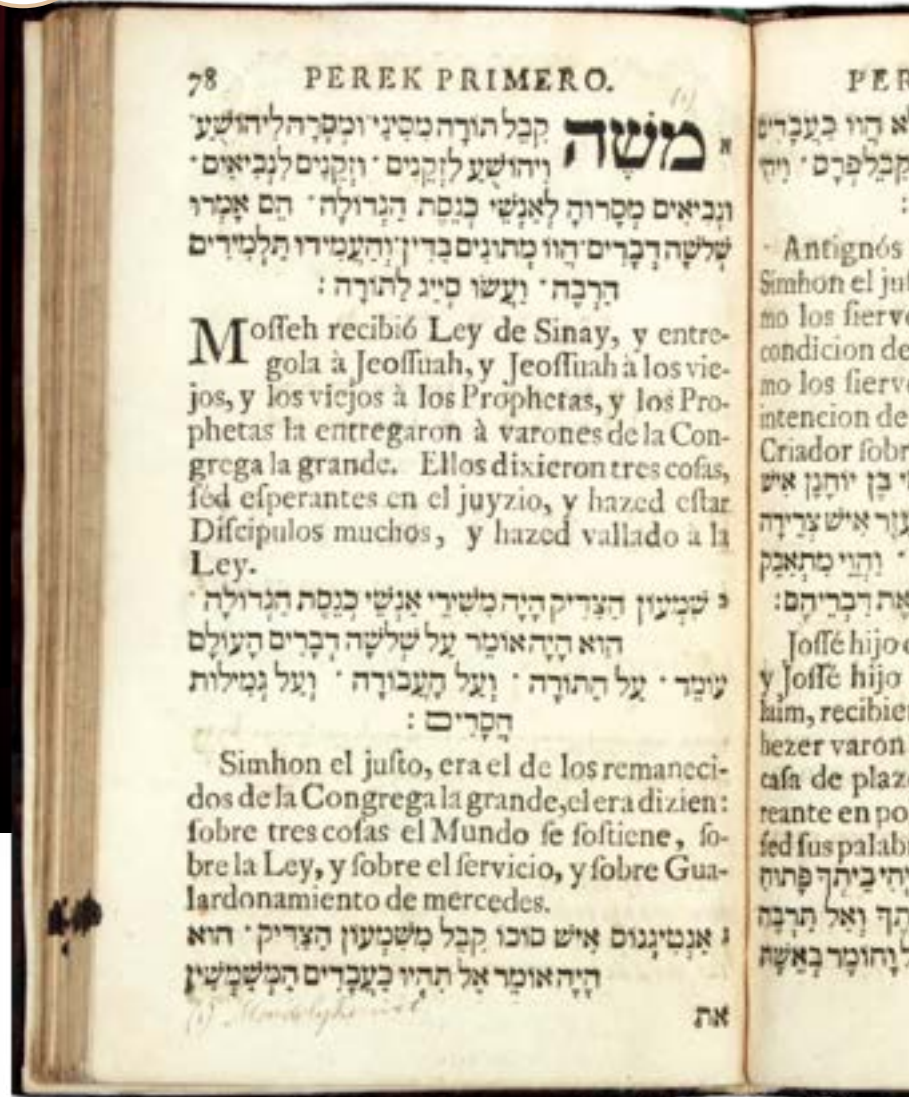 78 PEREK PRIMERO.
(1)
א משה קִבֵּל תּוֹרָה מִסִּינַי וּמְסָרָהּ לִיהוֹשֻׁעַ
וִיהוֹשֻׁעַ לִזְקֵנִים · וּזְקֵנִים לִנְבִיאִים ·
וּנְבִיאִים מְסָרוּהָ לְאַנְשֵׁי כְּנֶסֶת הַגְּדוֹלָה · הֵם אָמְרוּ
שְׁלֹשָׁה דְבָרִים · הֱווּ מְתוּנִים בַּדִּין · וְהַעֲמִידוּ תַּלְמִידִים
הַרְבֵּה · וַעֲשׂוּ סְיָיג לַתּוֹרָה :
Moſſeh recibió Ley de Sinay, y entre-
gola à Jeoſſuah, y Jeoſſuah à los vie-
jos, y los viejos à los Prophetas, y los Pro-
phetas la entregaron à varones de la Con-
grega la grande. Ellos dixieron tres coſas,
ſéd eſperantes en el juyzio, y hazed eſtar
Diſcipulos muchos, y hazed vallado à la
Ley.
ב שִׁמְעוֹן הַצַּדִּיק הָיָה מִשִּׁירֵי אַנְשֵׁי כְנֶסֶת הַגְּדוֹלָה ·
הוּא הָיָה אוֹמֵר עַל שְׁלֹשָׁה דְבָרִים הָעוֹלָם
עוֹמֵד · עַל הַתּוֹרָה · וְעַל הָעֲבוֹדָה · וְעַל גְּמִילוּת
חֲסָדִים :
Simhon el juſto, era el de los remaneci-
dos de la Congrega la grande, el era dizien:
ſobre tres coſas el Mundo ſe ſoſtiene, ſo-
bre la Ley, y ſobre el ſervicio, y ſobre Gua-
lardonamiento de mercedes.
ג אַנְטִיגְנוֹס אִישׁ סוֹכוֹ קִבֵּל מִשִּׁמְעוֹן הַצַּדִּיק · הוּא
הָיָה אוֹמֵר אַל תִּהְיוּ כַּעֲבָדִים הַמְשַׁמְּשִׁין
את
(1)
PER
לא הֱווּ כַּעֲבָדִים
לְקַבֵּל פְּרָס · וִיהִי
:
Antignós
Simhon el juſ
mo los ſierv
condicion de
mo los ſierv
intencion de
Criador ſobr
בֶּן יוֹחָנָן אִישׁ
אִישׁ צְרֵידָה
· וֶהֱוֵי מִתְאַבֵּק
אֶת דִּבְרֵיהֶם :
Joſſé hijo
y Joſſé hijo
laim, recibie
hezer varon
caſa de plaz
reante en po
ſed ſus palab
יְהִי בֵיתְךָ פָּתוּחַ
וְאַל תַּרְבֶּה
וָחוֹמֶר בְּאֵשֶׁת